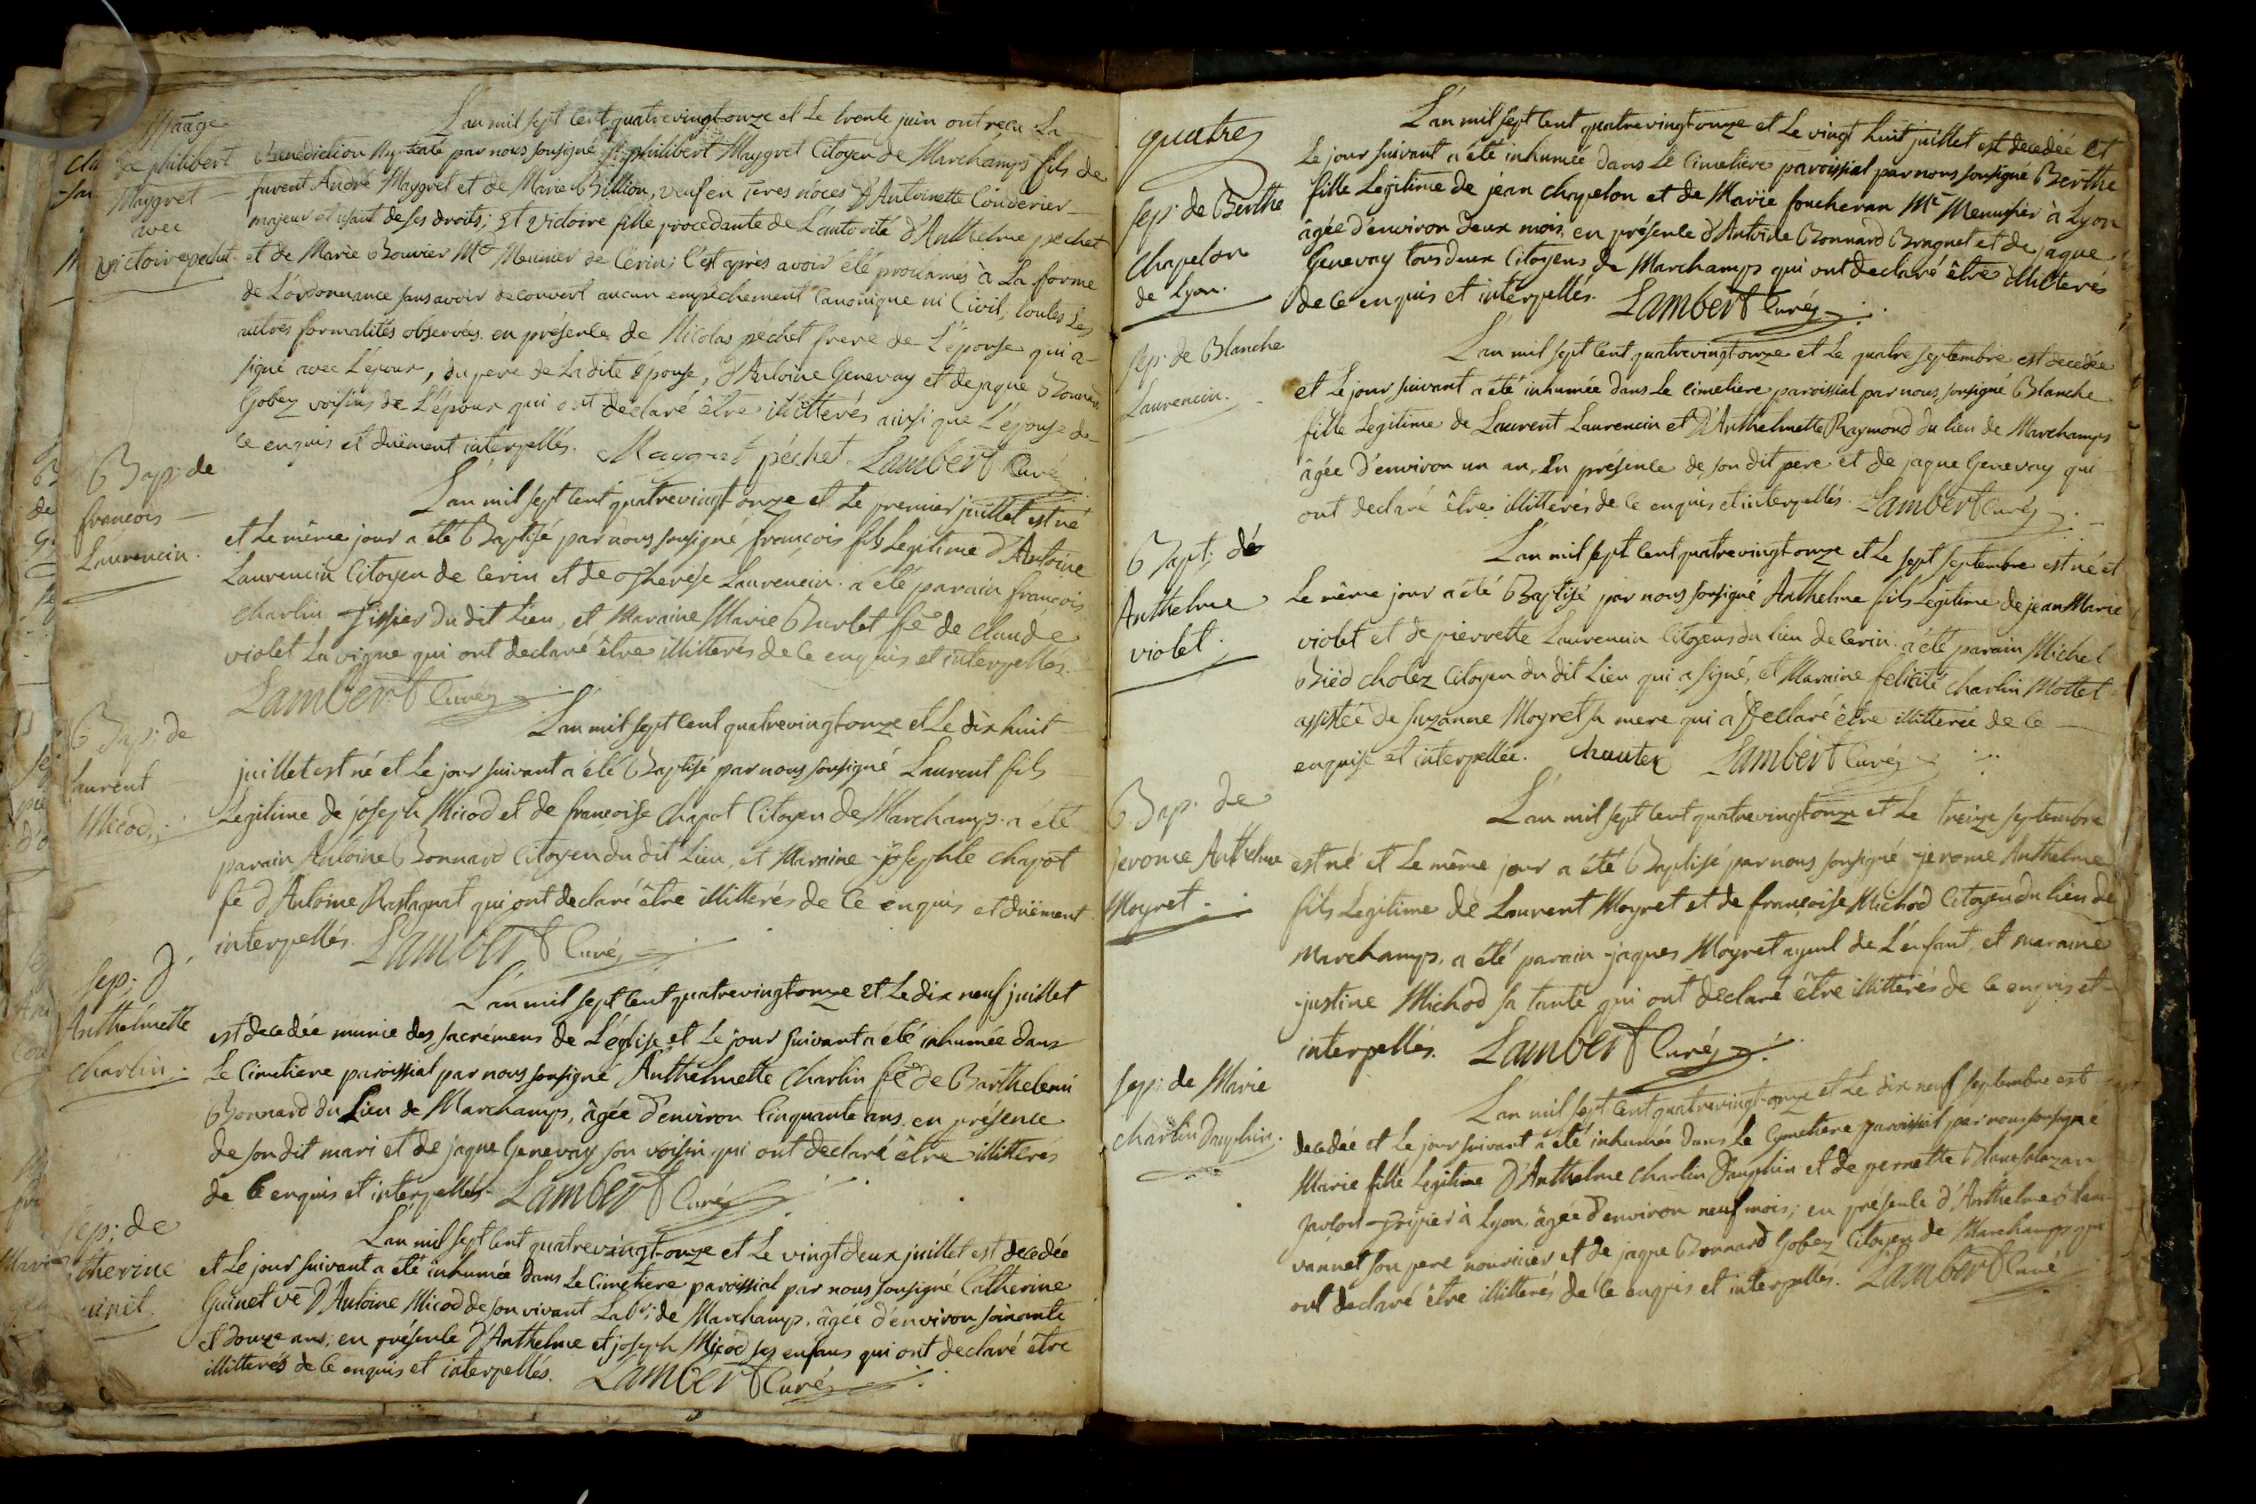 L'an mil sept cent quatrevingt-onze et Le trente juin ont reçu La
Benediction Nuptiale par nous sousigné philibert Maygret Citoyen de Marchamps fils de
furent André Maygret et de Marie Billion, veuf en 1eres noces D'Antoinette Couderier
majeur et usant de ses droits; Et victoire fille procedante de L'autorité d'Anthelme pechet
et de Marie Bouvier Me Meunier de Cerin; c'est après avoir été proclamés à La forme
de L'ordonnance sans avoir decouvert aucun empechement Canonique ni Civil, toutes Les
autres formalités observées. en présence de Nicolas péchet frere de L'épouse qui a
signé avec L'epoux, du pere de Ladite épouse, d'Antoine Genevay et de jaque Bonnard
Gobez voisins de L'époux qui ont declaré être illitterés ainsi que L'épouse de
ce enquis et duëment interpellés. Maygret péchet Lambert Curé
mariage
de philibert
Maygret
avec
victoire pechet
L'an mil sept cent quatrevingt-onze et Le premier juillet est né
et Le même jour a été Baptisé par nous sousigné françois fils Legitime d'Antoine
Laurencin Citoyen de Cerin et de Therése Laurencin. a été parain françois
Charlin Tissier du dit Lieu, et Maraine Marie Burlet fe de Claude
violet La vigne qui ont declaré être illitterés de ce enquis et interpellés
Lambert Curé
Bap: de
françois
Laurencin.
L'an mil sept cent quatrevingt-onze et Le dix huit
juillet est né et Le jour suivant a été Baptisé par nous sousigné Laurent fils
Legitime de joseph Micod et de françoise Chapot Citoyen de Marchamps. a été
parain Antoine Bonnard Citoyen du dit Lieu, et Maraine josephte Chapot
fe d'Antoine Rastagnat qui ont declaré être illitterés de ce enquis et duëment
interpellés. Lambert Curé
Bap: de
Laurent
Micod.
L'an mil sept cent quatrevingt-onze et Le dix neuf juillet
est decedée munie des sacrémens de L'église et Le jour suivant a été inhumée dans
Le Cimetiere paroissial par nous sousigné Anthelmette Charlin fe de Barthelemi
Bonnard du Lieu de Marchamps, âgée d'environ Cinquante ans. en présence
de son dit mari et de jaque Genevay son voisin qui ont declaré être illitterés
de ce enquis et interpellés. Lambert Curé
sep: d'
Anthelmette
Charlin.
L'an mil sept cent quatrevingt-onze et Le vingt deux juillet est decedée
et Le jour suivant a été inhumée dans Le Cimetiere paroissial par nous sousigné Catherine
Guinet ve D'Antoine Micod de son vivant Labr: de Marchamp, âgée d'environ soixante
et Douze ans; en présence d'Anthelme et joseph Micod ses enfans qui ont declaré être
illitterés de ce enquis et interpellés. Lambert Curé
sep: de
therine
uinet.
quatre
L'an mil sept cent quatrevingt-onze et Le vingt huit juillet est decedée et
Le jour suivant a été inhumée dans Le Cimetiere paroissial par nous sousigné Berthe
fille Legitime de jean Chapelon et de Marie foucheran Me Menusier à Lyon
âgée d'environ Deux mois, en présence d'Antoine Bonnard Braguet et de jaque
Genevay tous deux Citoyens de Marchamps qui ont declaré être illitterés
de ce enquis et interpellés. Lambert Curé
sep: de Berthe
Chapelon
de Lyon.
L'an mil sept cent quatrevingt-onze et Le quatre septembre est decedée
et Le jour suivant a été inhumée dans Le cimetiere paroissial par nous sousigné Blanche
fille Legitime de Laurent Laurencin et D'Anthelmette Raymond du lieu de Marchamps
âgée D'environ un an, En présence de son dit pere et de jaque Genevay qui
ont declaré être illitterés de ce enquis et interpellés. Lambert Curé
sep: de Blanche
Laurencin.
L'an mil sept cent quatrevingt-onze et Le sept septembre est né et
Le même jour a été Baptisé par nous sousigné Anthelme fils Legitime de jean Marie
violet et de pierrette Laurencin Citoyens du lieu de Cerin. a été parain Michel
Bied Cholez Citoyen du dit Lieu qui a signé, et Maraine felicité Charlin Mottet
assistée de Suzanne Moyret sa mere qui a declaré être illitterée de ce
enquise et interpellée. Lambert Curé
Bapt: de
Anthelme
violet.
L'an mil sept cent quatrevingt-onze et Le treize septembre
est né et Le même jour a été Baptisé par nous sousigné jerome Anthelme
fils Legitime de Laurent Moyret et de françoise Michod Citoyen du lieu de
Marchamps. a été parain jaques Moyret ayeul de L'enfant, et maraine
justine Michod sa tante qui ont declaré être illitterés de ce enquis et
interpellés. Lambert Curé
Bap: de
jerome Anthelme
Moyret.
L'an mil sept cent quatrevingt-onze et Le dix neuf septembre est
decedée et Le jour suivant a été inhumée dans Le Cymetiere paroissial par nous sousigné
Marie fille Legitime D'Anthelme Charlin Dauphin et de pernette
fripier à Lyon, âgée d'environ neuf mois; en présence d'Anthelme
vannet son pere nourricier et de jaque Bonnard Gobez Citoyen de Marchamps qui
ont declaré être illitterés de ce enquis et interpellés. Lambert Curé
sep: de Marie
Charlin Dauphin.